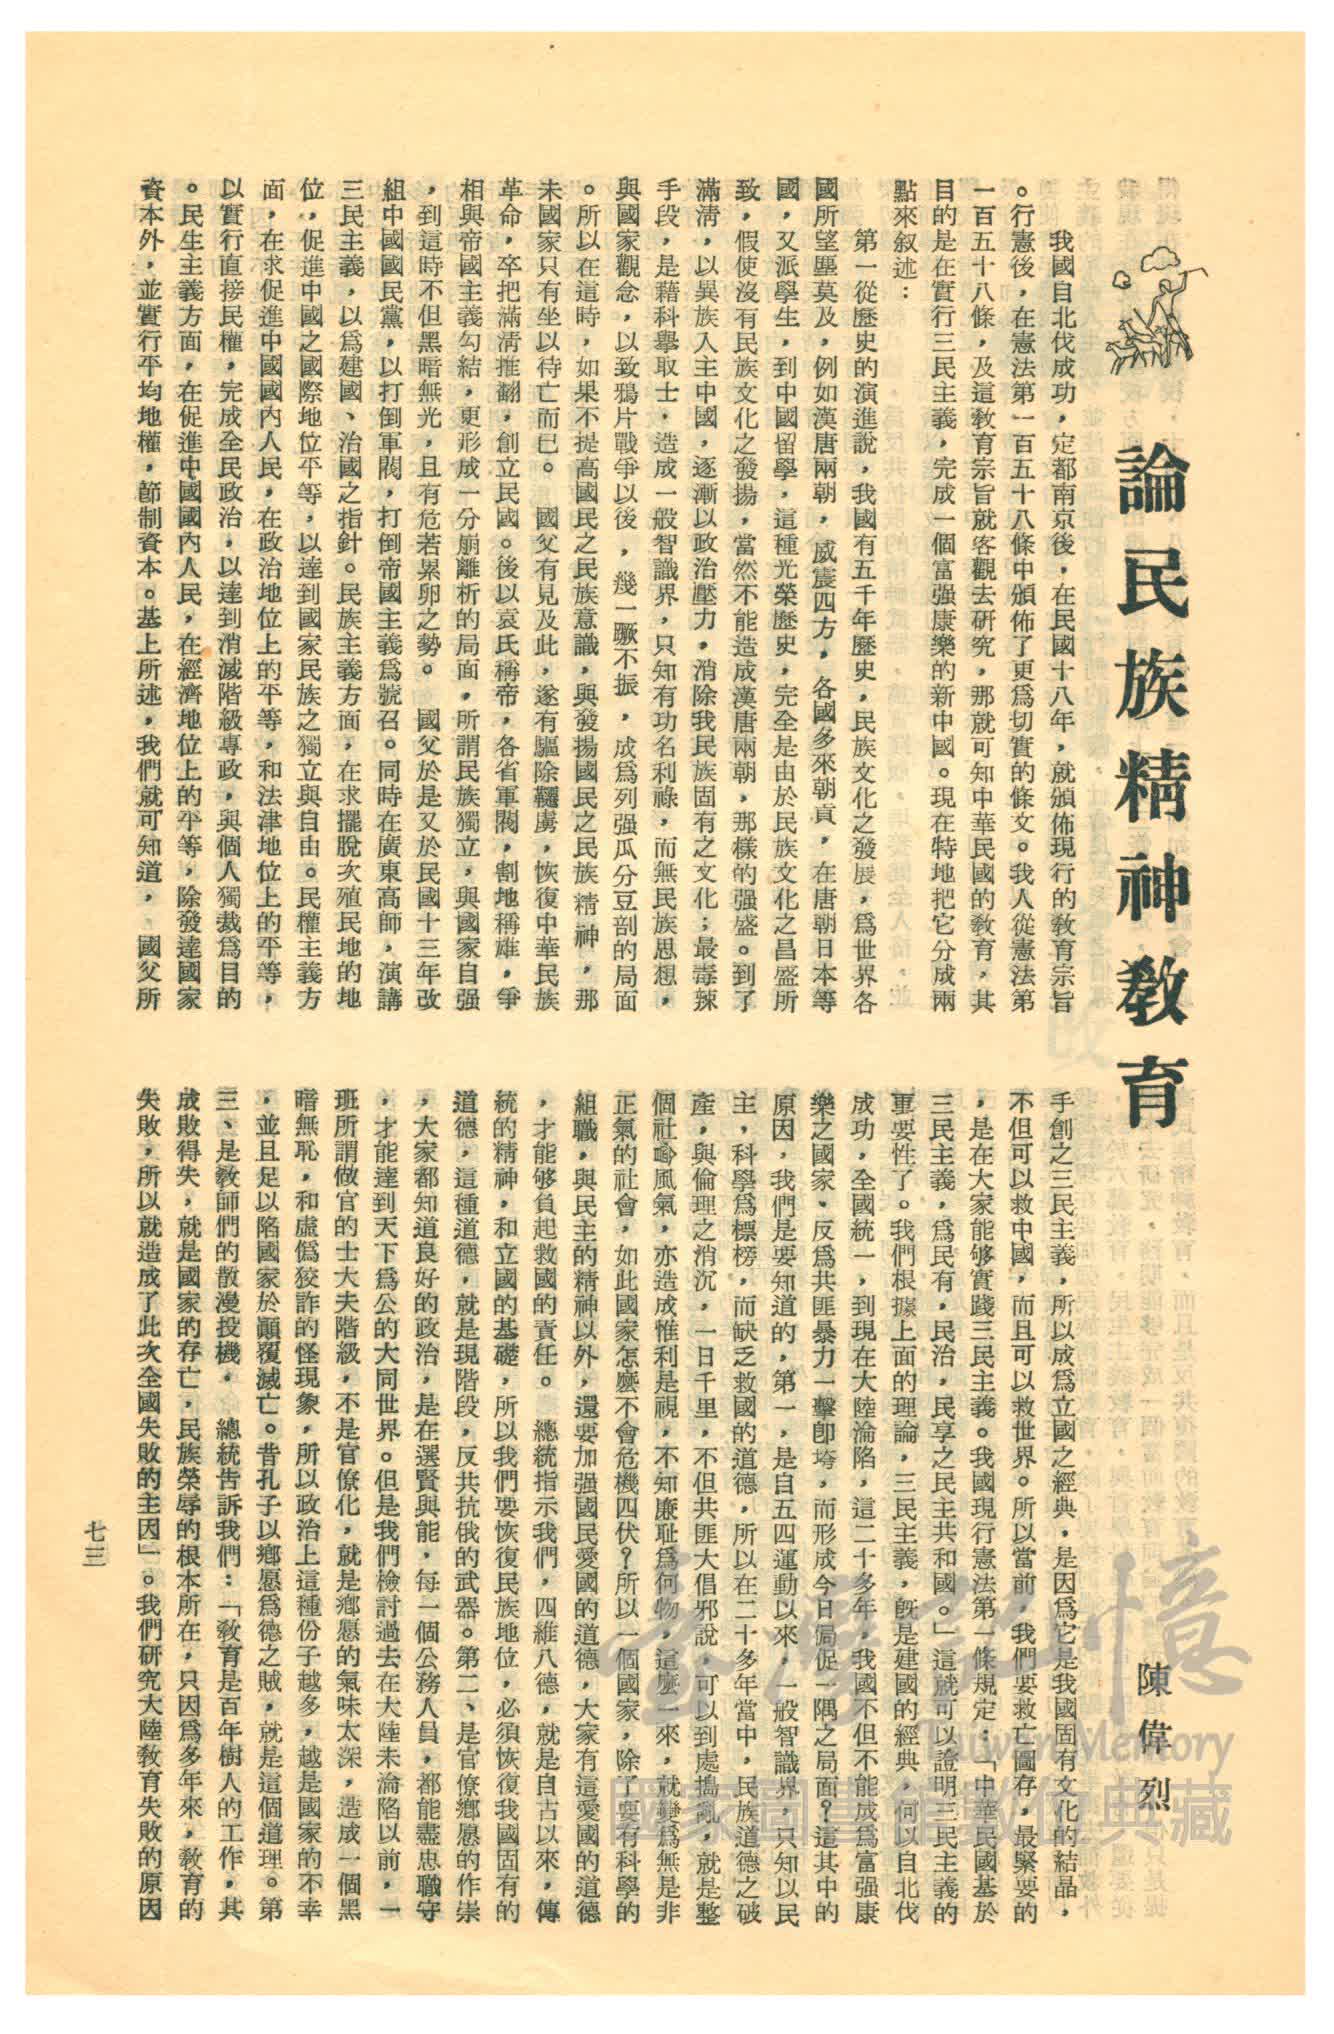 論民族精神教育
陳偉烈
我國自北伐成功，定都南京後，在民國十八年，就頒佈現行的敎育宗旨
。行憲後，在憲法第一百五十八條中頒佈了更爲切實的條文。我人從憲法第
一百五十八條，及這敎育宗旨就客觀去研究，那就可知中華民國的敎育，其
目的是在實行三民主義，完成一個富强康樂的新中國。現在特地把它分成兩
點來叙述：
第一從歷史的演進說，我國有五千年歷史，民族文化之發展，爲世界各
國所望塵莫及，例如漢唐兩朝，威震四方，各國多來朝貢，在唐朝日本等
國，又派學生，到中國留學，這種光榮歷史，完全是由於民族文化之昌盛所
致，假使沒有民族文化之發揚，當然不能造成漢唐兩朝，那樣的强盛。到了
滿淸，以異族入主中國，逐漸以政治壓力，消除我民族固有之文化；最毒辣
手段，是藉科擧取士，造成一般智識界，只知有功名利祿，而無民族思想，
與國家觀念，以致鴉片戰爭以後，幾一蹶不振，成爲列强瓜分豆剖的局面
。所以在這時，如果不提高國民之民族意識，與發揚國民之民族精神，那
未國家只有坐以待亡而已。　國父有見及此，遂有驅除韃虜，恢復中華民族
革命，卒把滿淸推翻，創立民國。後以袁氏稱帝，各省軍閥，割地稱雄，爭
相與帝國主義勾結，更形成一分崩離析的局面，所謂民族獨立，與國家自强
，到這時不但黑暗無光，且有危若累卵之勢。　國父於是又於民國十三年改
組中國國民黨，以打倒軍閥，打倒帝國主義爲號召。同時在廣東高師，演講
三民主義，以爲建國、治國之指針。民族主義方面，在求擺脫次殖民地的地
位，促進中國之國際地位平等，以達到國家民族之獨立與自由。民權主義方
面，在求促進中國國內人民，在政治地位上的平等，和法津地位上的平等，
以實行直接民權，完成全民政治，以達到消滅階級專政，與個人獨裁爲目的
。民生主義方面，在促進中國國內人民，在經濟地位上的平等，除發達國家
資本外，並實行平均地權，節制資本。基上所述，我們就可知道，　國父所
手創之三民主義，所以成爲立國之經典，是因爲它是我國固有文化的結晶，
不但可以救中國，而且可以救世界。所以當前，我們要救亡圖存，最緊要的
，是在大家能够實踐三民主義。我國現行憲法第一條規定：「中華民國基於
三民主義，爲民有，民治，民享之民主共和國。」這就可以證明三民主義的
重要性了。我們根據上面的理論，三民主義，旣是建國的經典，何以自北伐
成功，全國統一，到現在大陸淪陷，這二十多年，我國不但不能成爲富强康
樂之國家、反爲共匪暴力一擊卽垮，而形成今日侷促一隅之局面？這其中的
原因，我們是要知道的，第一，是自五四運動以來，一般智識界，只知以民
主，科學爲標榜，而缺乏救國的道德，所以在二十多年當中，民族道德之破
產，與倫理之消沉，一日千里，不但共匪大倡邪說，可以到處搗亂，就是整
個社會風氣，亦造成惟利是視，不知廉耻爲何物，這麼一來，就變爲無是非
正氣的社會，如此國家怎麼不會危機四伏？所以一個國家，除了要有科學的
組職，與民主的精神以外，還要加强國民愛國的道德，大家有這愛國的道德
，才能够負起救國的責任。　總統指示我們，四維八德，就是自古以來，傳
統的精神，和立國的基礎，所以我們要恢復民族地位，必須恢復我國固有的
道德，這種道德，就是現階段，反共抗俄的武器。第二、是官僚鄕愿的作崇
，大家都知道良好的政治，是在選賢與能，每一個公務人員，都能盡忠職守
，才能達到天下爲公的大同世界。但是我們檢討過去在大陸未淪陷以前，一
班所謂做官的士大夫階級，不是官僚化，就是鄕愿的氣味太深，造成一個黑
暗無恥，和虛僞狡詐的怪現象，所以政治上這種份子越多，越是國家的不幸
，並且足以陷國家於顚覆滅亡。昔孔子以鄕愿爲德之賊，就是這個道理。第
三、是敎師們的散漫投機，　總統吿訴我們：「敎育是百年樹人的工作，其
成敗得失，就是國家的存亡，民族榮辱的根本所在，只因爲多年來，敎育的
失敗，所以就造成了此次全國失敗的主因」。我們研究大陸敎育失敗的原因
七三
臺灣記憶
Taiwan Memory
國家圖書館數位典藏